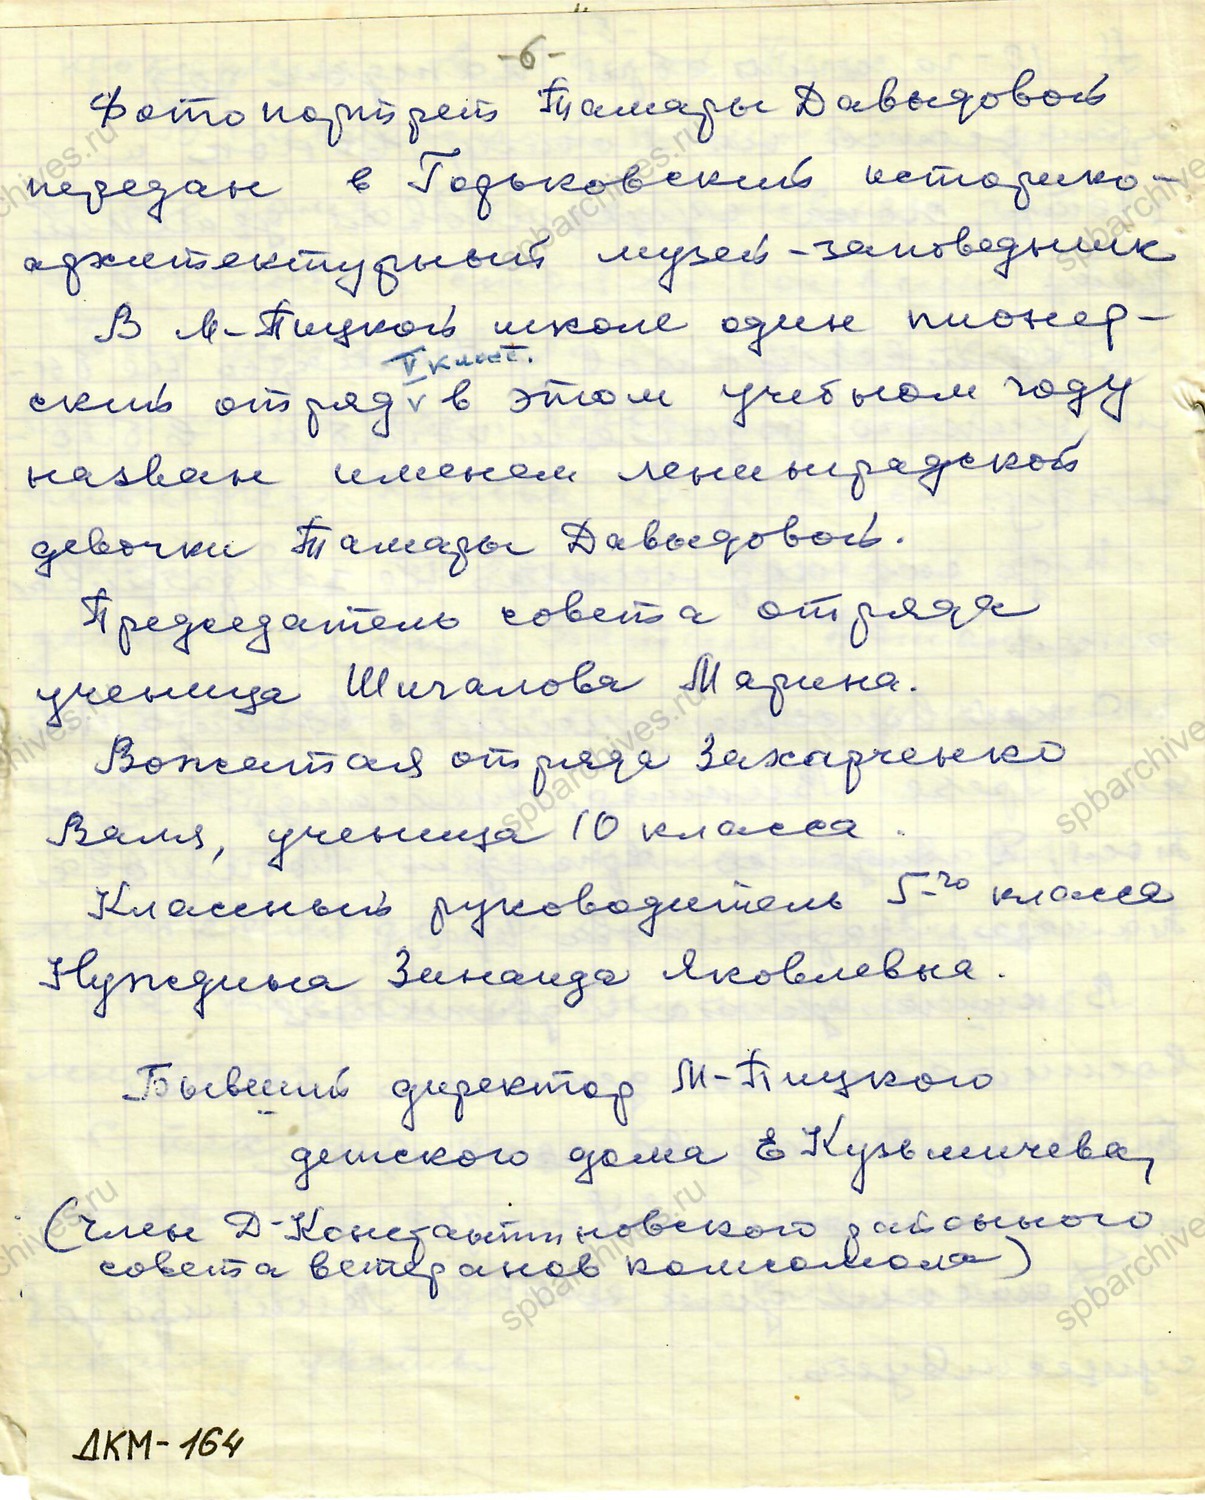 -6-
Фотопортрет Тамары Давыдовой
передан в Горьковский историко-
архитектурный музей-заповедник
В М-Пицкой школе один пионер-
V класс.
ский отряд v в этом учебном году
назван именем ленинградской
девочки Тамары Давыдовой.
Председатель совета отряда
ученица Шичалова Марина.
Вожатая отряда Захарченко
Валя, ученица 10 класса.
Классный руководитель 5-го класса
Нуждина Зинаида Яковлевна.
Бывший директор М-Пицкого
детского дома Е Кузьмичева,
(член Д-Константиновского районного
совета ветеранов комсомола)
ДКМ-164
spbarchives.ru